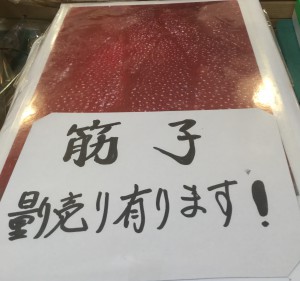 筋子
量り売り有ります！